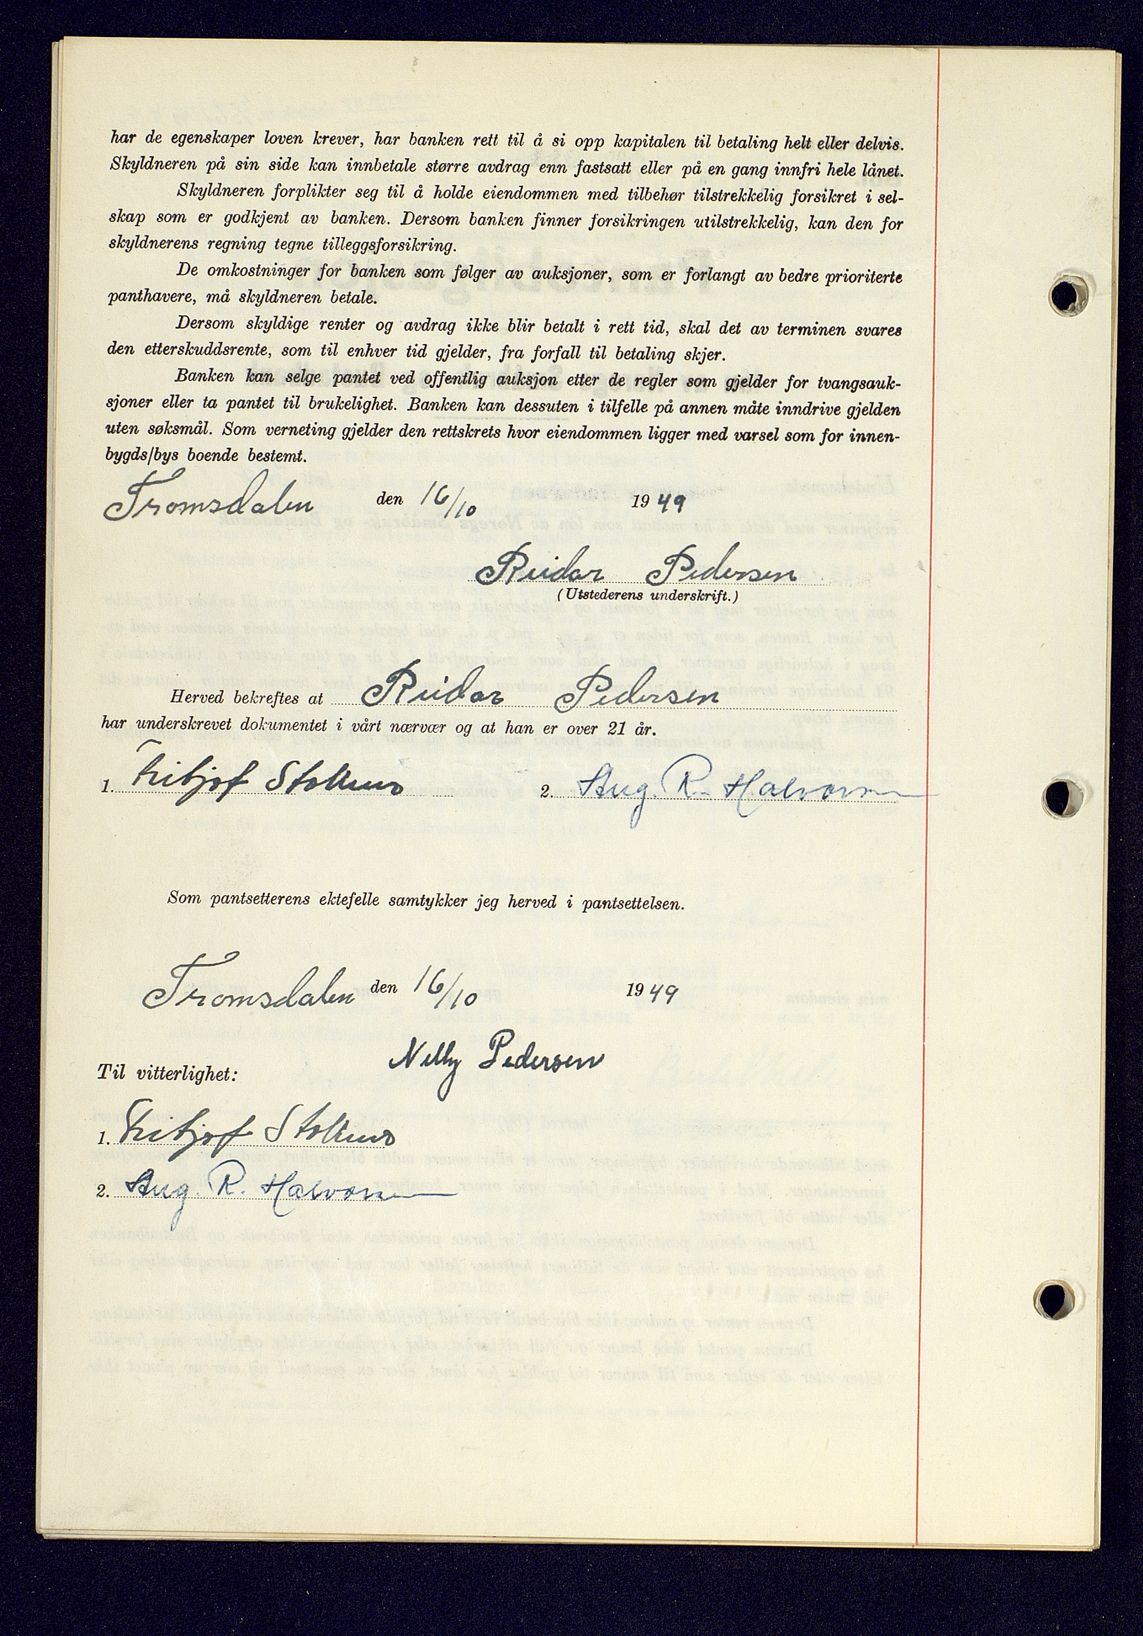 har de egenskaper loven krever, har banken rett til å si opp kapitalen til betaling helt eller delvis.
Skyldneren på sin side kan innbetale større avdrag enn fastsatt eller på en gang innfri hele lånet.
Skyldneren forplikter seg til å holde eiendommen med tilbehør tilstrekkelig forsikret i sel-
skap som er godkjent av banken. Dersom banken finner forsikringen utilstrekkelig, kan den for
skyldnerens regning tegne tilleggsforsikring.
De omkostninger for banken som følger av auksjoner, som er forlangt av bedre prioriterte
panthavere, må skyldneren betale.
Dersom skyldige renter og avdrag ikke blir betalt i rett tid, skal det av terminen svares
den etterskuddsrente, som til enhver tid gjelder, fra forfall til betaling skjer.
Banken kan selge pantet ved offentlig auksjon etter de regler som gjelder for tvangsauk-
sjoner eller ta pantet til brukelighet. Banken kan dessuten i tilfelle på annen måte inndrive gjelden
uten søksmål. Som verneting gjelder den rettskrets hvor eiendommen ligger med varsel som for innen-
bygds/bys boende bestemt.
Tromsdalen den 16/10 1949
Reidar Pedersen
(Utstederens underskrift.)
Herved bekreftes at Reidar Pedersen
har underskrevet dokumentet i vårt nærvær og at han er over 21 år.
1. Fritjof 2. Aug. R. Halvorsen
Som pantsetterens ektefelle samtykker jeg herved i pantsettelsen.
Tromsdalen den 16/10 1949
Nelly Pedersen
Til vitterlighet:
1. Fritjof
2. Aug. R. Halvorsen